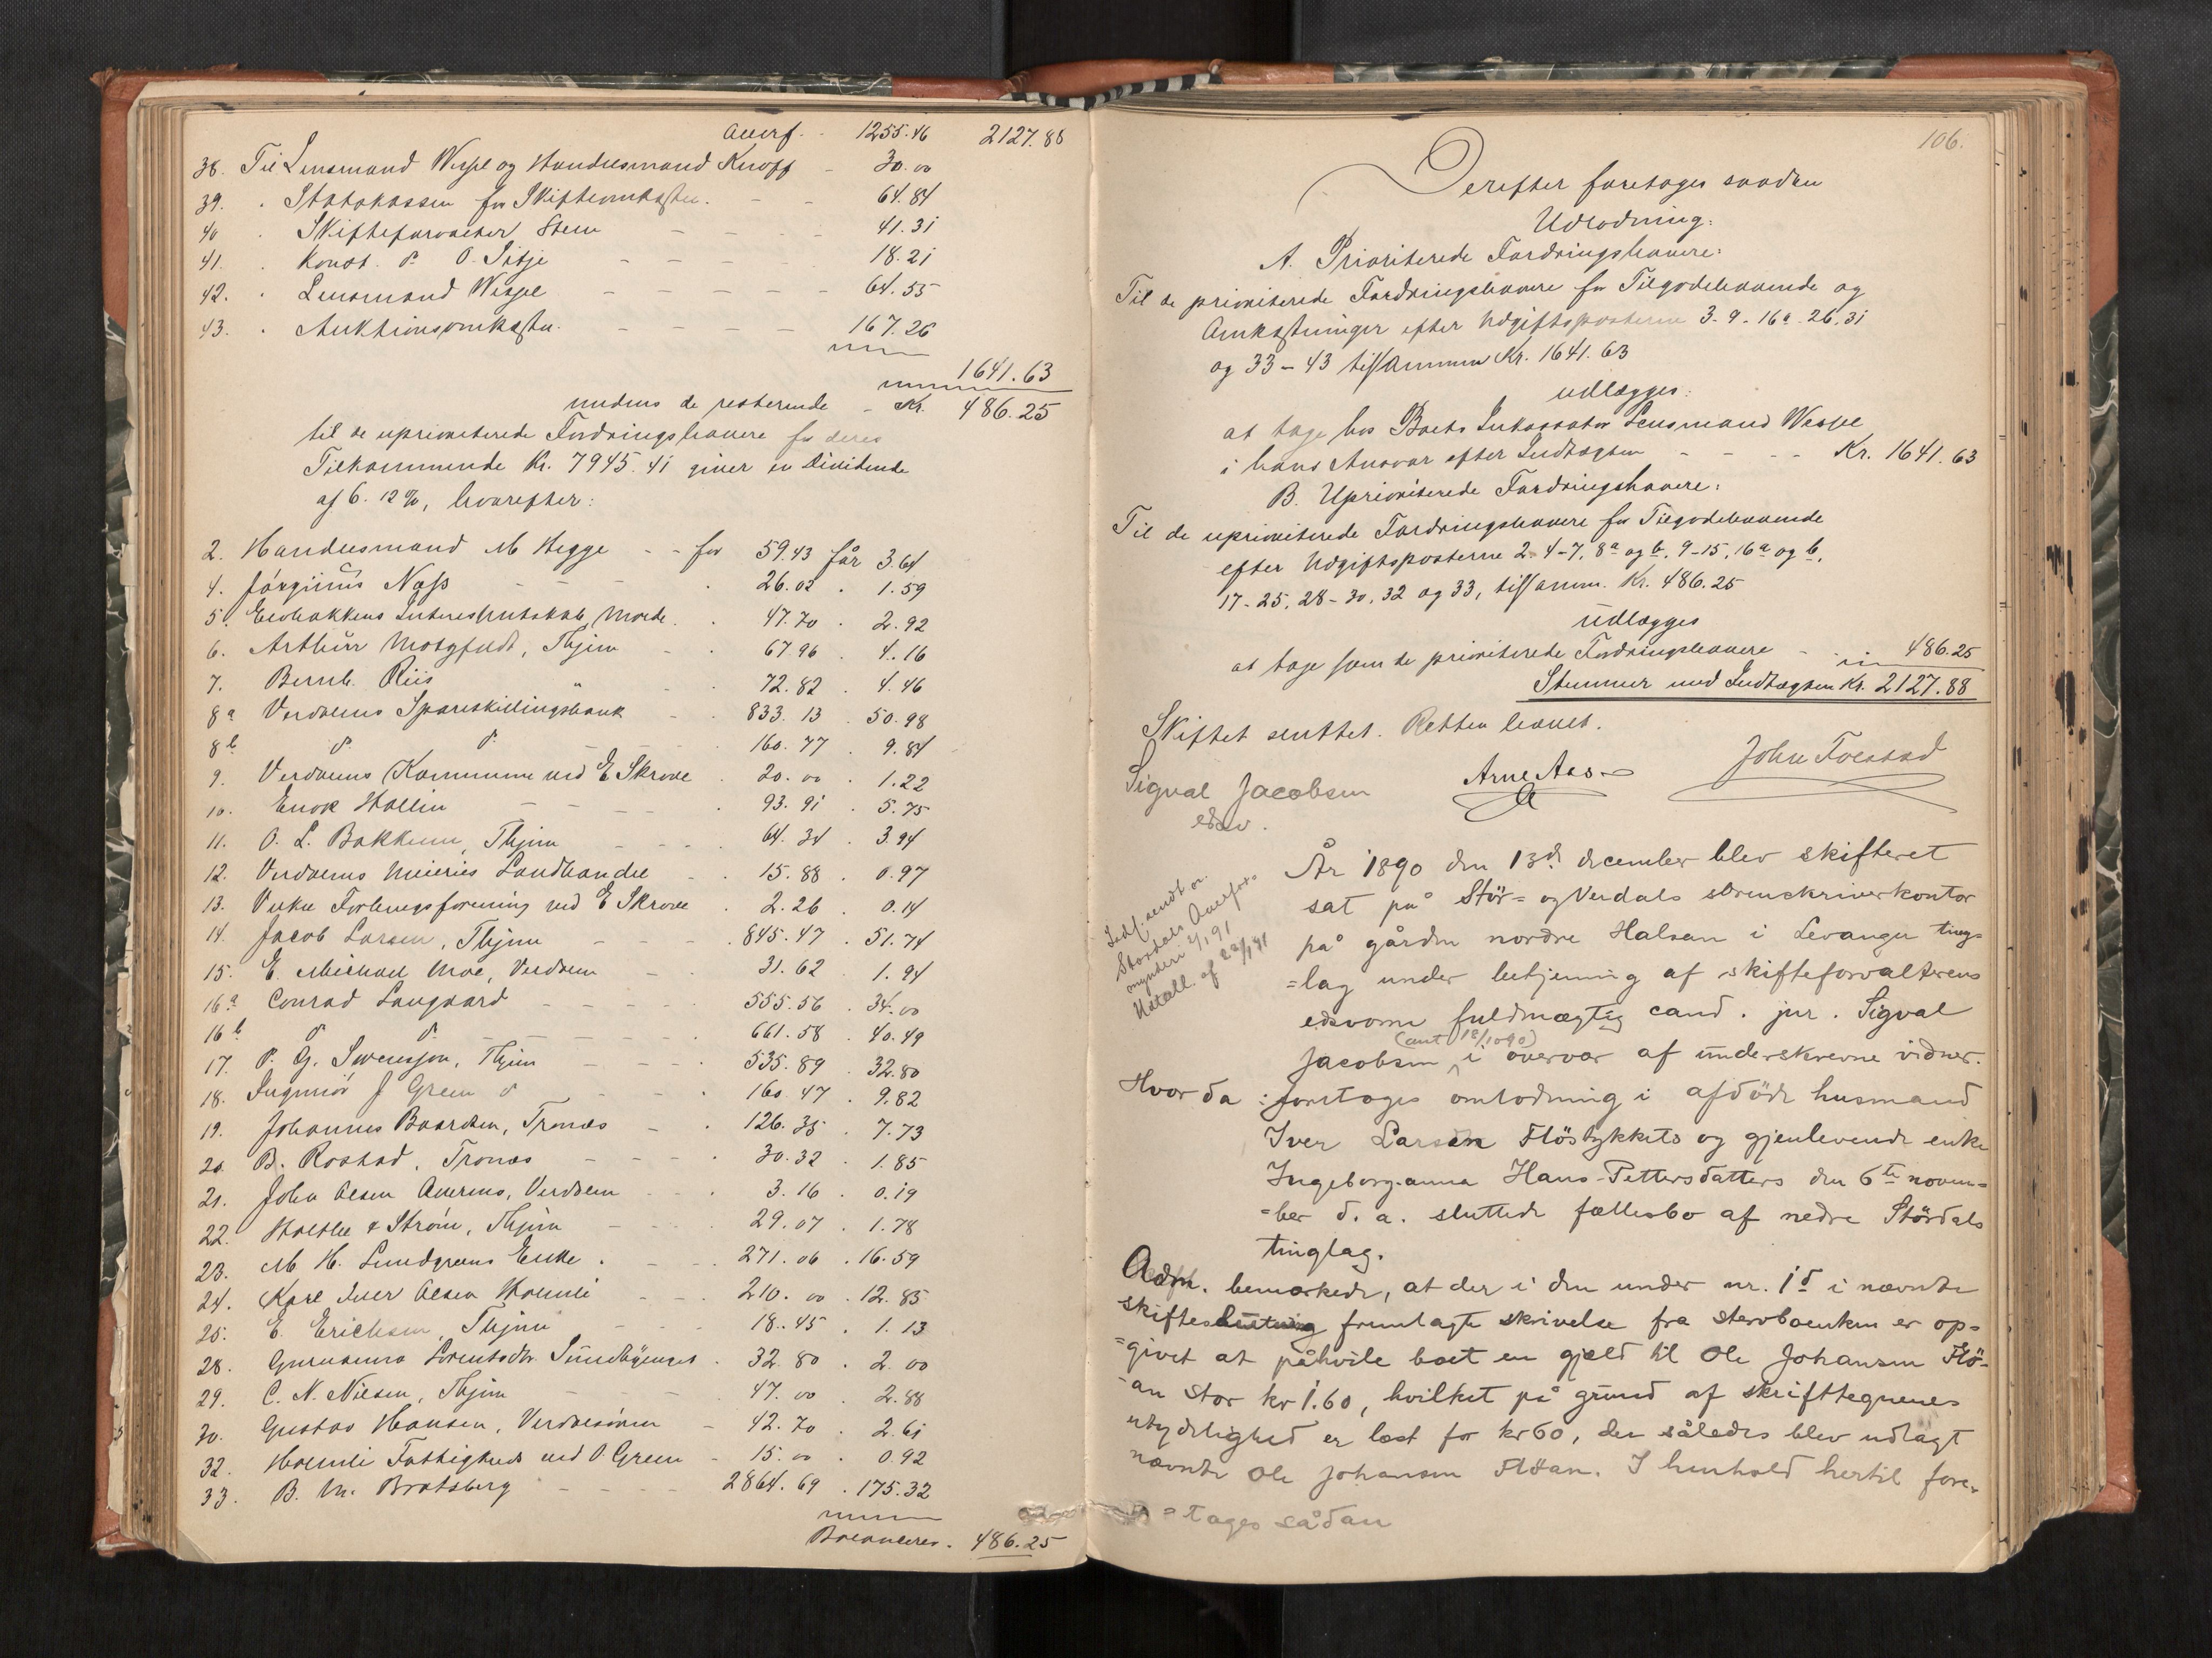 Overf. - 1255.46 2127.88
38. Til Lensmand Wessel og Handelsmand Knoff - 30.00
39. " Statskassen for Skifteomkostn. - - 64.84
40 " Skifteforvalter Steen - - - - 41.31
41. " Konst. do O. Sitje - - - - 18.21
42. " Lensmand Wessel - - - - - 64.55
43. " Auktionsomkostn. - - - - 167.26
1641.63
medens de resterende - Kr. 486.25
til de uprioriterede Fordringshavere for deres
Tilkommende Kr. 7945.41 giver en Dividende
af 6.12 %, hvorefter:
2. Handelsmand M Hegge - - for 59.43 får 3.64
4. Jörginus Næss - - - . 26.02 . 1.59
5. Interessentskab, . 47.70 . 2.92
6. Arthur Motzfeldt, Thjem - . 67.96 . 4.16
7. Bernh. Riis . 72.82 . 4.46
8a Verdalens Spareskillingsbank - . 833.13 . 50.98
8b do do - - - . 160.77 . 9.84
9. Verdalens Kommune ved E Skrove . 20.00 . 1.22
10. Enok Hallin - - - . 93.91 . 5.75
11. O. L. Bakken, Thjem - - - . 64.34 . 3.94
12. Verdalens Meieries Landhandel . 15.88 . 0.97
13. Vuku Forbrugsforening ved E Skrove . 2.26 . 0.14
14. Jacob Larsen, Thjem - - - . 845.47 . 51.74
15. E. Michael Moe, Verdalen - . 31.62 . 1.94
16a Conrad Langaard - - - - 555.56 . 34.00
16b do do - - - - - 661.58 . 40.49
17. P. G. Svensson, Thjem - - - 535.89 . 32.80
18. Ingeniör J Green do - - . 160.47 . 9.82
19. Johannes Baarden, Tronæs - . 126.35 . 7.73
20. B. Rostad, Tronæs - - - . 30.32 . 1.85
21. John Olsen Overmo, Verdalen - . 3.16 . 0.19
22. Holthe & Ström, Thjem - - - 29.07 . 1.78
23. M H. Lundgreens Enke . - . 271.06 . 16.59
24. Karl Iver Olsen Holmli - - . 210.00 . 12.85
25. E. Erichsen, Thjem - - . 18.45 . 1.13
28. Gurianna Lorentsdtr . 32.80 . 2.00
29. C. N. Nilsen, Thjem - - - 47.00 . 2.88
30. Gustav Hansen, Verdalsören - 42.70 . 2.61
32. Holmli Fattigkreds ved O. Green - 15.00 . 0.92
33. B. M. Bratsberg - - - - 2864.69 . 175.32
Balancerer. 486.25
106.
Derefter foretoges saadan
Udlodning:
A. Prioriterede Fordringshavere:
Til de prioriterede Fordringshavere for Tilgodehavende og
Omkostninger efter Udgiftsposterne 3. 9. 16a. 26. 31
og 33 - 43 tilsammen Kr. 1641.63
udlægges:
at tage hos Boets Inkassator Lensmand Wessel
i hans Ansvar efter Indtægten - - - - Kr. 1641.63
B. Uprioriterede Fordringshavere:
Til de uprioriterede Fordringshavere for Tilgodehavende
efter Udgiftsposterne 2. 4-7, 8a og b, 9-15, 16a og b,
17-25, 28-30, 32 og 33, tilsamm. Kr. 486.25
udlægges
at tage som de prioriterede Fordringshavere - - 486.25
Stemmer med Indtægten Kr. 2127.88
Skiftet sluttet. Retten hævet.
Sigval Jacobsen Arne Aas John Forstad
edsv.
År 1890 den 13de december blev skifteret
sat på Stör- og Verdals sorenskriverkontor
på gården nordre Halsan i Levanger ting=
=lag under betjening af skifteforvalterens
edsvorne fuldmægtig cand. jur. Sigval
Jacobsen i overvær af underskrevne vidner.
Hvor da : foretoges omlodning i afdöde husmand
Iver Larsen Flöstykkets og gjenlevende enke
Ingeborganna Hans-Pettersdatters den 6te novem=
=ber d. a. sluttede fællesbo af nedre Stördals
tinglag.
Adm. bemærkede, at der i den under nr. 1d i nævnte
skifteslutning fremlagte skrivelse fra stervboenken er op=
=givet at påhvile boet en gjæld til Ole Johansen Flö=
=an stor kr 1.60, hvilket på grund af skrifttegnenes
utydelighed er læst for kr 60, der således blev udlagt
nævnte Ole Johansen Flöan. I henhold hertil fore=
=tages sådan